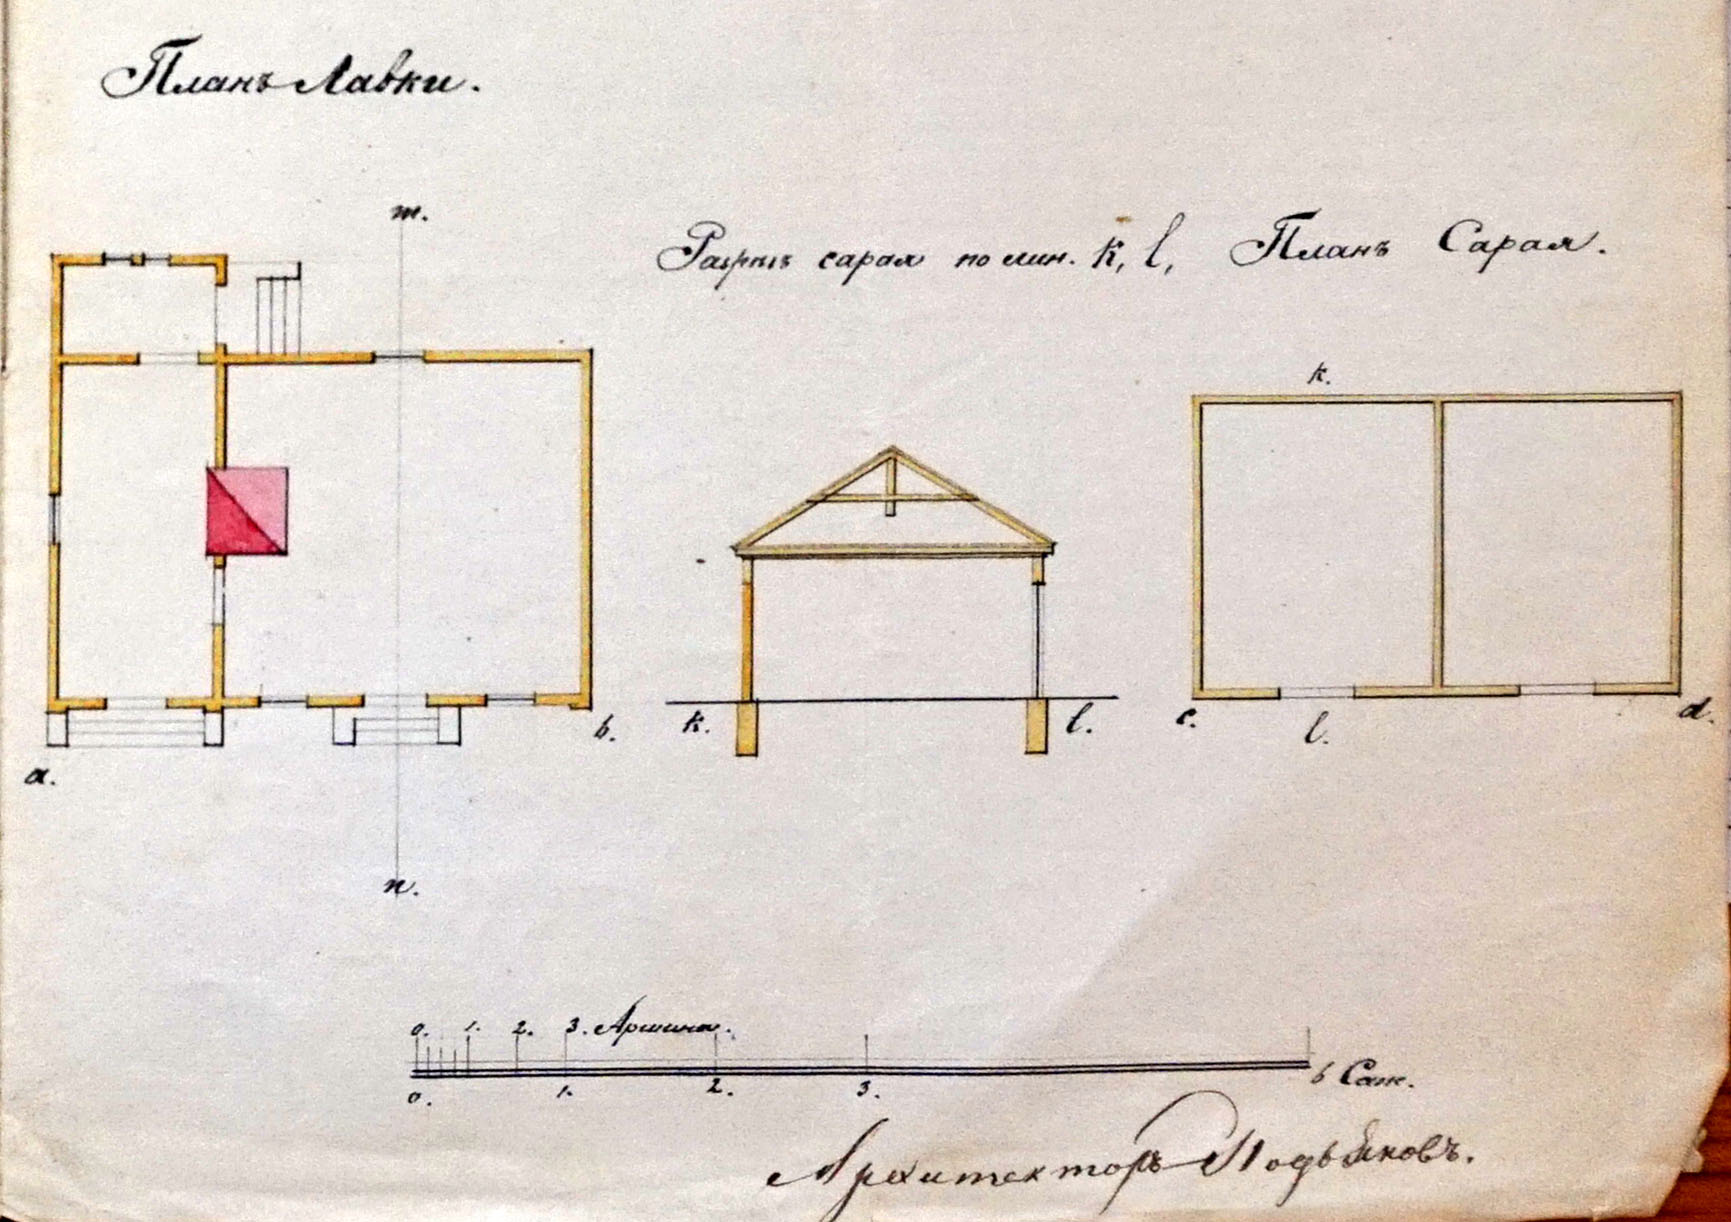 Планъ Лавки.
m.
Разрѣзъ сарая по лин. k, l,
Планъ Сарая.
k.
a.
b.
k.
l.
c.
l.
d.
n.
0. 1. 2. 3. Аршина.
0. 1. 2. 3. 6 Саж.
Архитекторъ Подьяковъ.